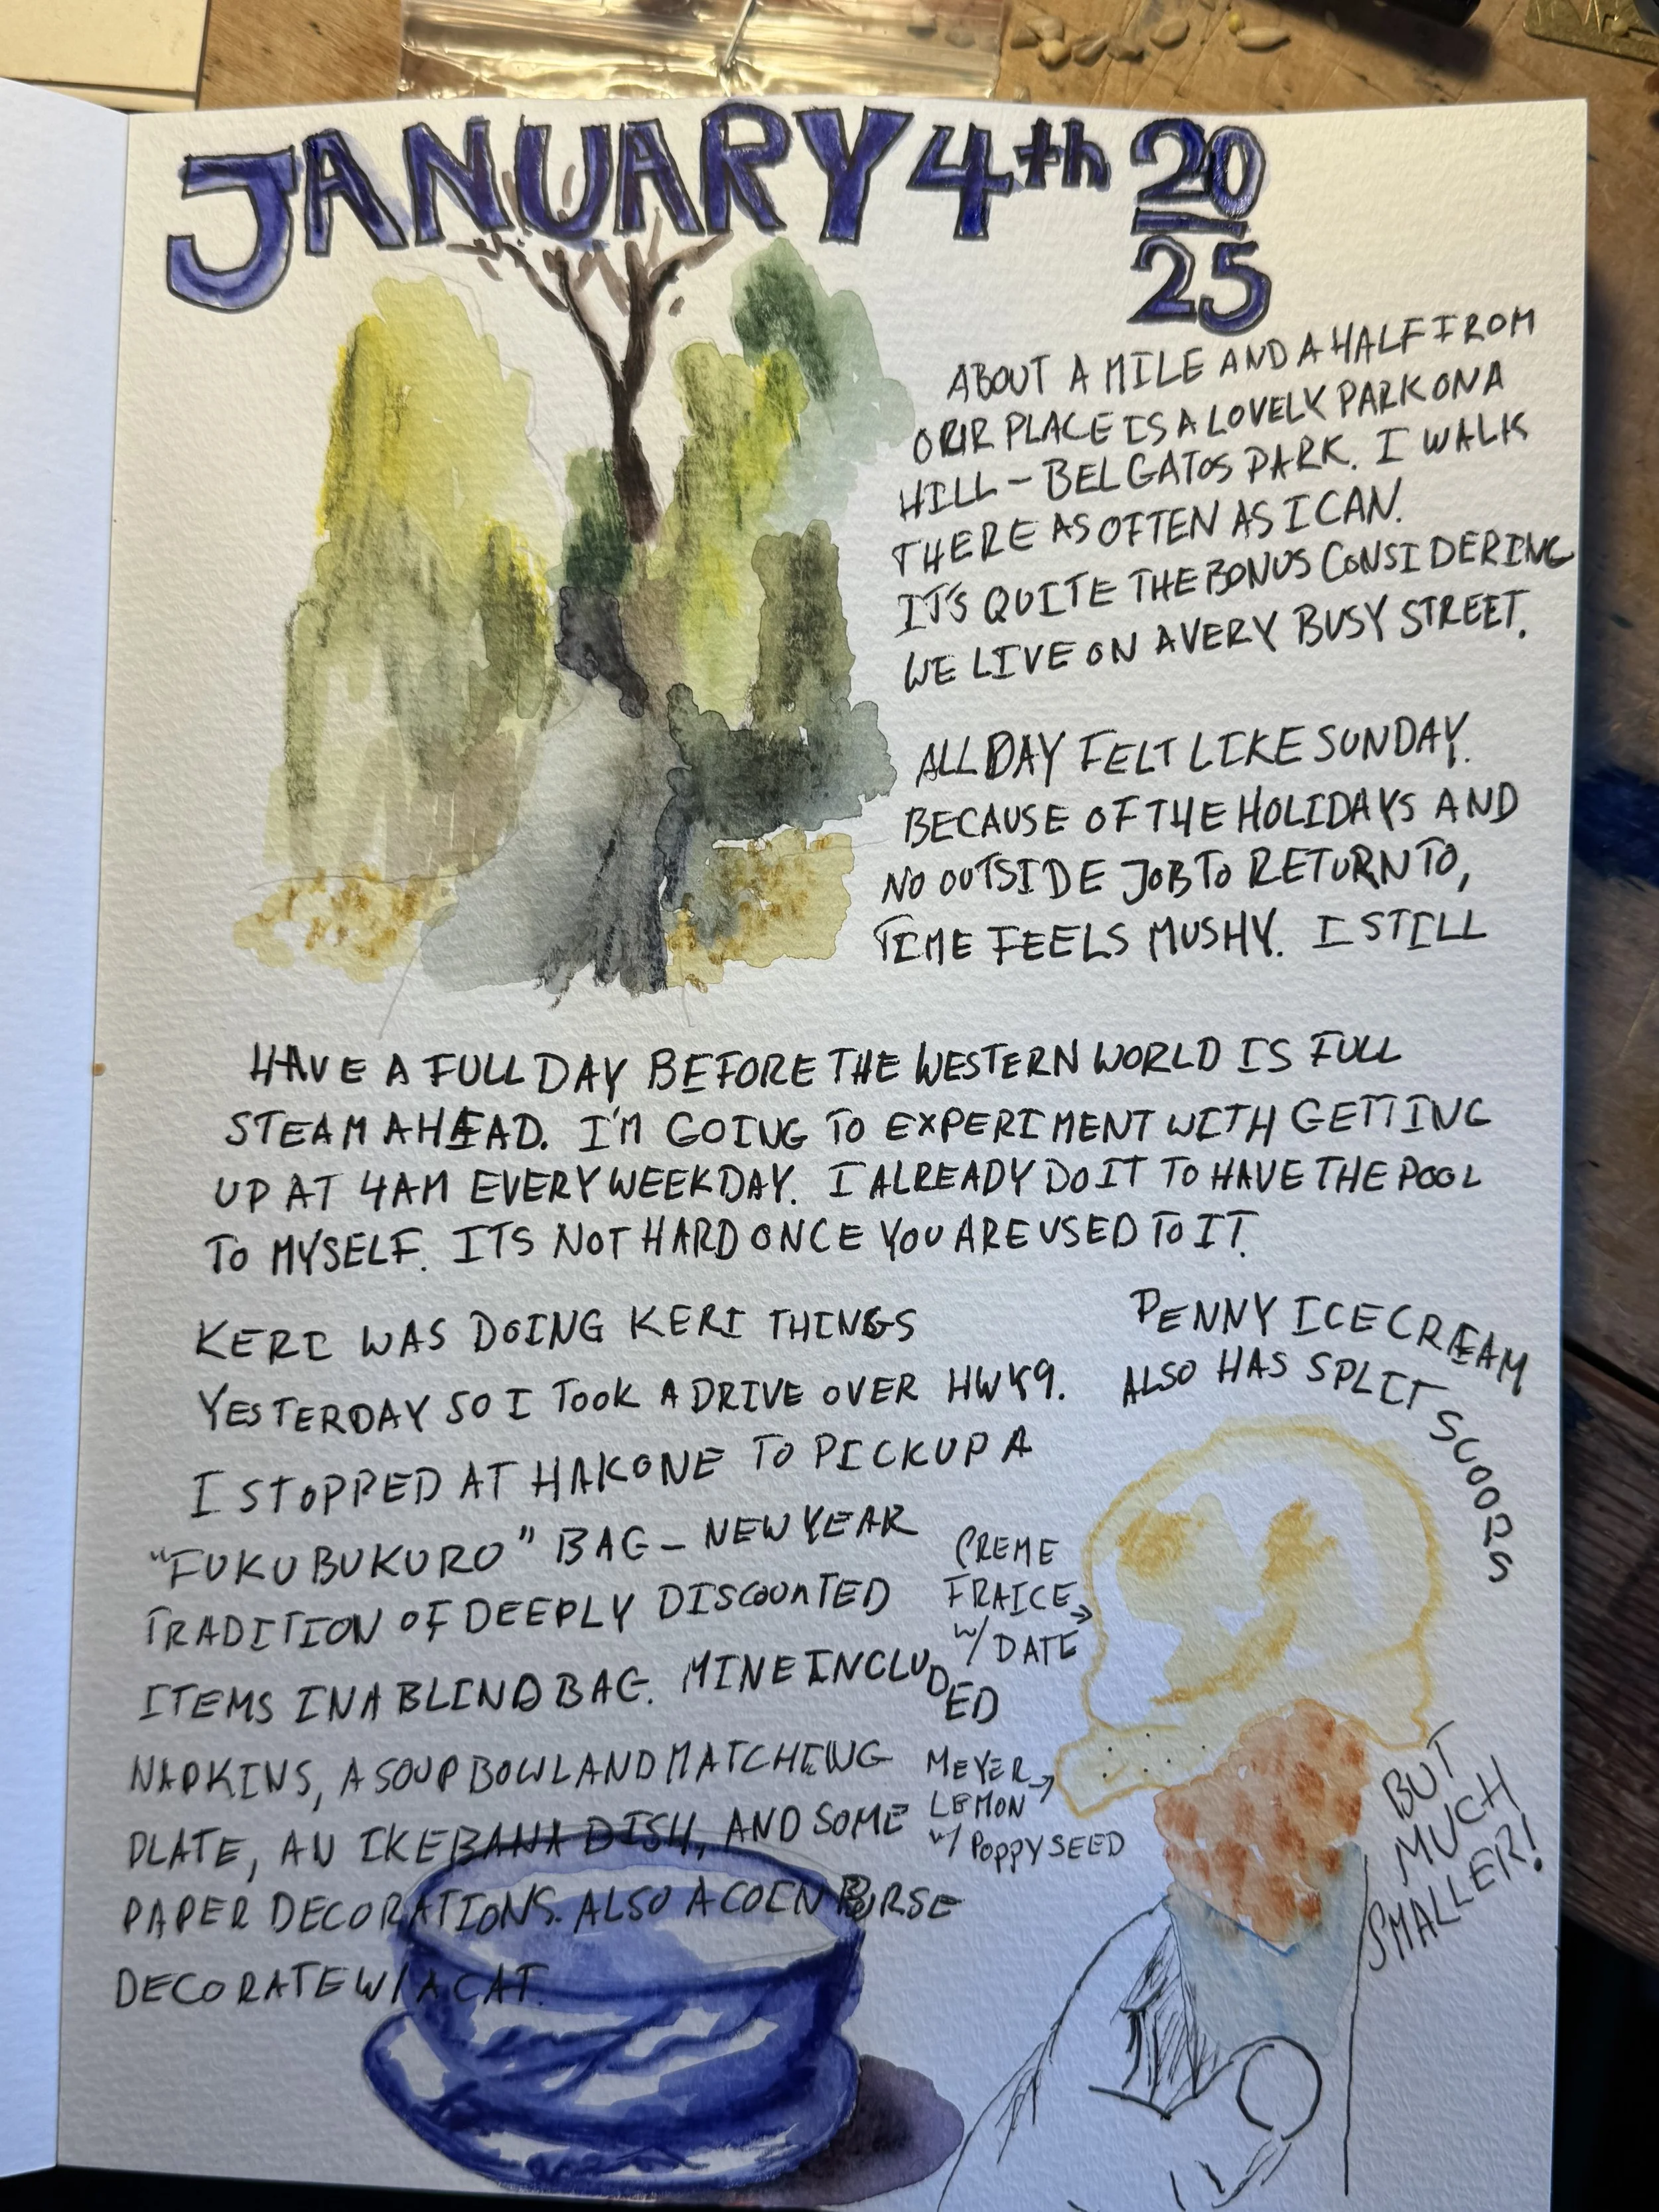 JANUARY 4th 20
25
ABOUT A MILE AND A HALF FROM
OUR PLACE IS A LOVELY PARK ON A
HILL - BELGATOS PARK. I WALK
THERE AS OFTEN AS I CAN.
IT'S QUITE THE BONUS CONSIDERING
WE LIVE ON A VERY BUSY STREET.
ALL DAY FELT LIKE SUNDAY.
BECAUSE OF THE HOLIDAYS AND
NO OUTSIDE JOB TO RETURN TO,
TIME FEELS MUSHY. I STILL
HAVE A FULL DAY BEFORE THE WESTERN WORLD IS FULL
STEAM AHEAD. I'M GOING TO EXPERIMENT WITH GETTING
UP AT 4AM EVERY WEEKDAY. I ALREADY DO IT TO HAVE THE POOL
TO MYSELF. ITS NOT HARD ONCE YOU ARE USED TO IT.
KERI WAS DOING KERI THINGS
YESTERDAY SO I TOOK A DRIVE OVER HWY9.
I STOPPED AT HAKONE TO PICKUP A
"FUKUBUKURO" BAG - NEW YEAR
TRADITION OF DEEPLY DISCOUNTED
ITEMS IN A BLIND BAG. MINE INCLUDED
NAPKINS, A SOUP BOWL AND MATCHING
PLATE, AN IKEBANA DISH, AND SOME
PAPER DECORATIONS. ALSO A COIN PURSE
DECORATE W/ A CAT.
PENNY ICE CREAM
ALSO HAS SPLIT SCOOPS
CREME
FRAICE
W/ DATE
MEYER
LEMON
W/ POPPYSEED
BUT
MUCH
SMALLER!